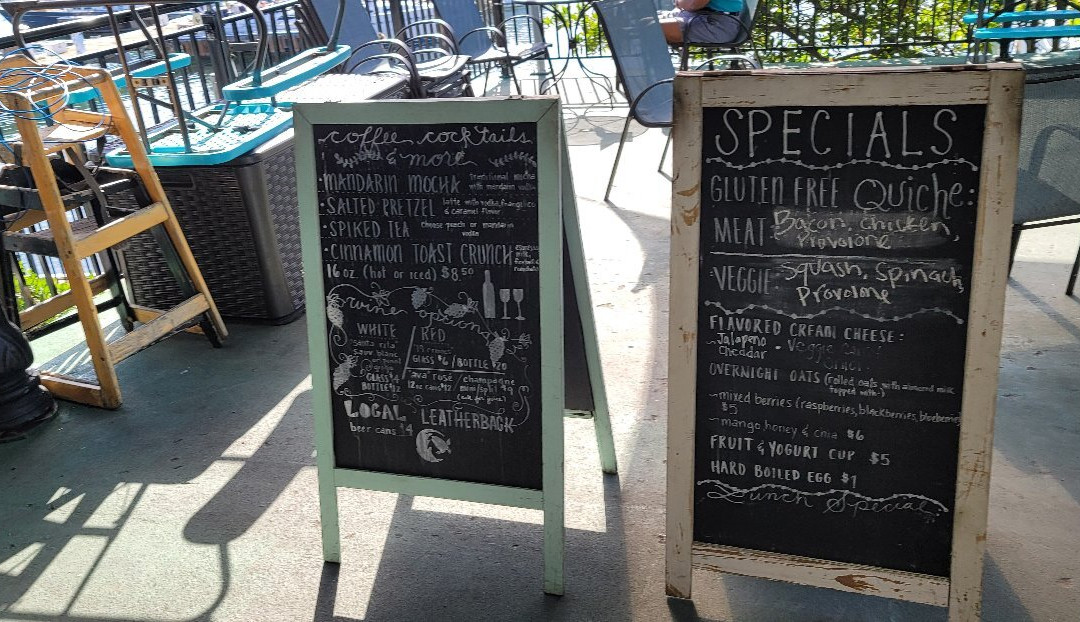 coffee cocktails
& more
• MANDARIN MOCHA traditional mocha
with mandarin vodka
• SALTED PRETZEL latte with vodka, frangelico
& caramel flavor
• SPIKED TEA choose peach or mandarin
vodka
• CINNAMON TOAST CRUNCH
16 oz. (hot or iced) $8.50
wine options
WHITE
"santa rita"
sauv blanc
GLASS
BOTTLE
RED
GLASS $6 / BOTTLE $20
"ava" rosé
12oz cans $12
champagne
mini/split $9
LOCAL
beer cans $4
LEATHERBACK
SPECIALS
GLUTEN FREE Quiche:
MEAT Bacon, chicken,
Provolone
VEGGIE Squash, Spinach,
Provolone
FLAVORED CREAM CHEESE:
Jalapeno
Cheddar
• Veggie
OVERNIGHT OATS (rolled oats with almond milk
topped with-)
~mixed berries (raspberries, blackberries, blueberries
$5
~mango, honey & chia $6
FRUIT & YOGURT CUP $5
HARD BOILED EGG $1
Lunch Special: